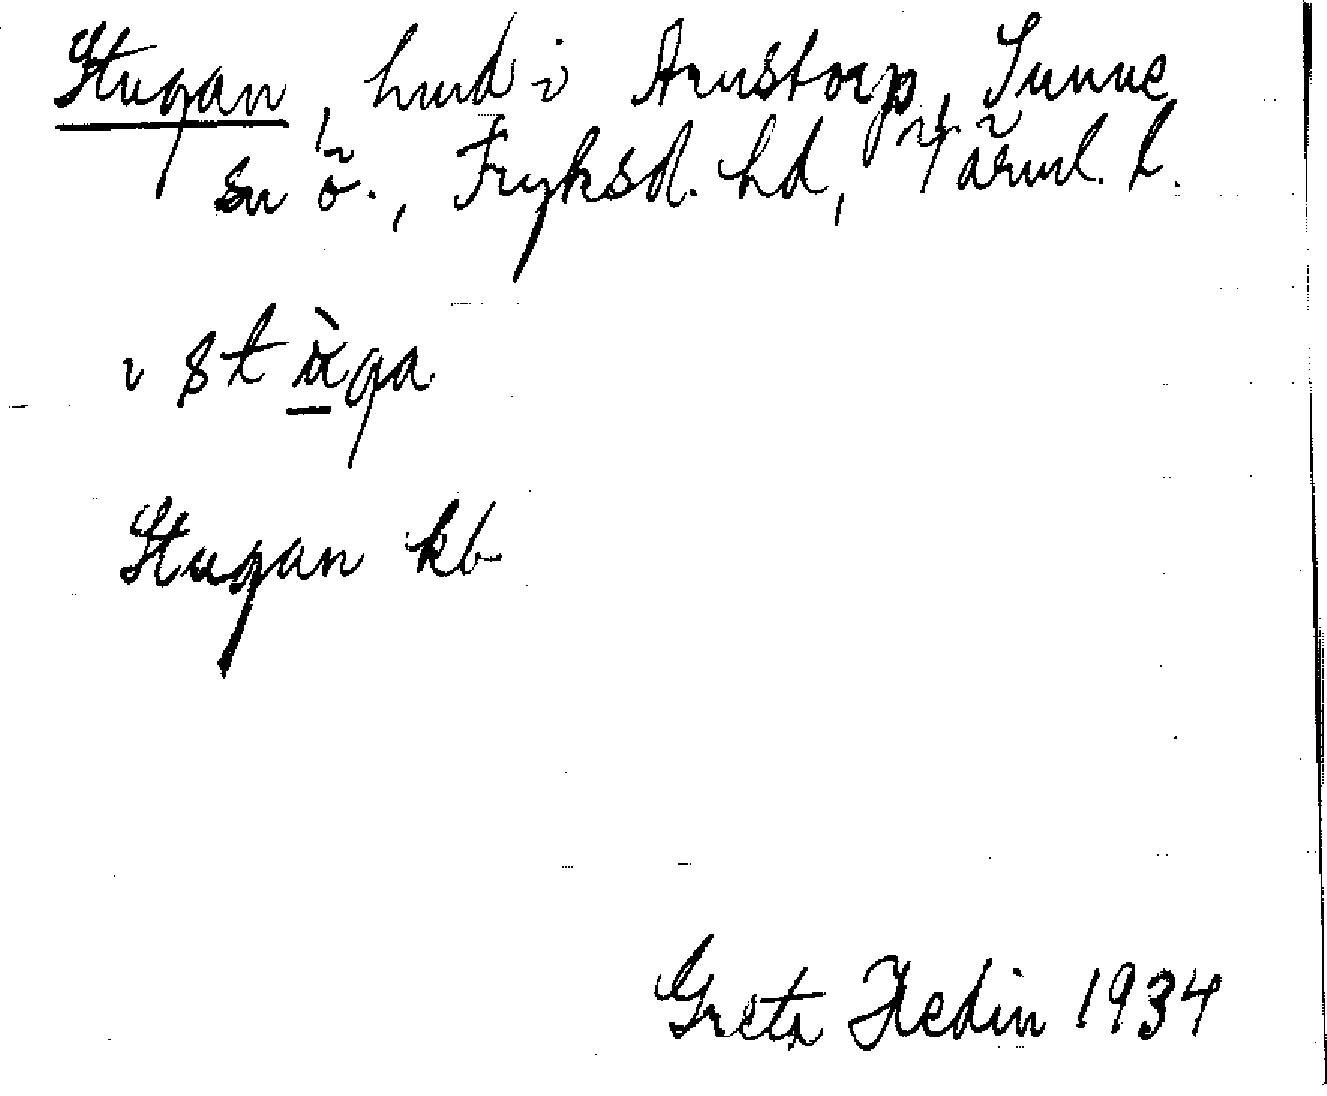 Stugan, hmd i Arnstorp, Sunne
sn ö., Fryksd. hd, Värml. l.
i st ùga
Stugan kb
Greta Hedin 1934